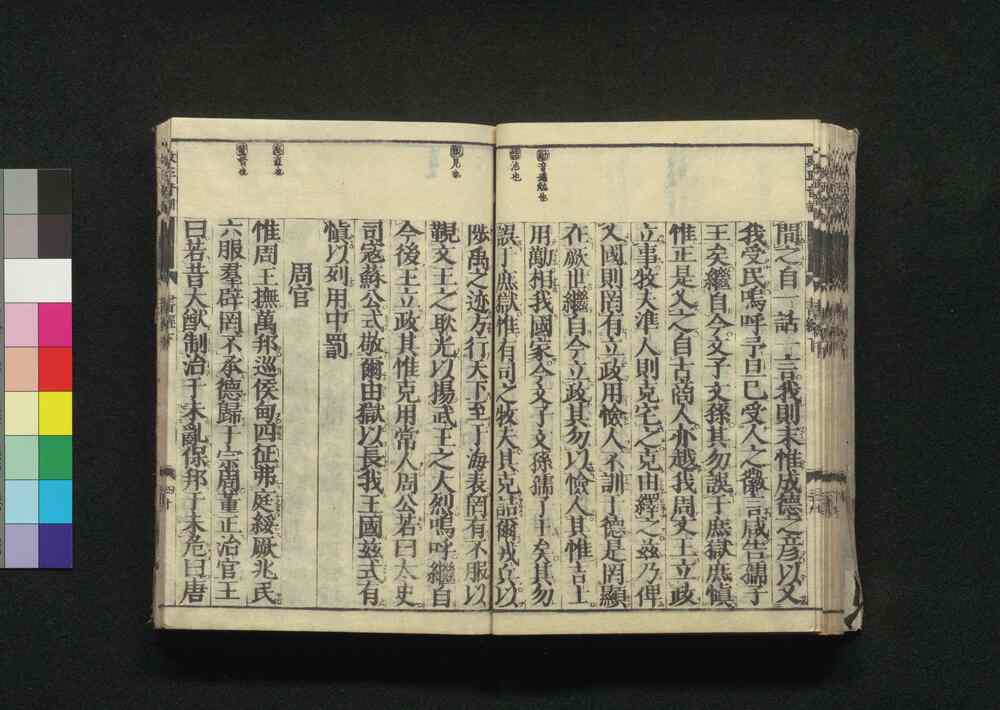 勱音邁勉也
詰治也
覲見也
庭直也
間之自一話一言我則末惟成德之彦以乂
我受民嗚呼予旦已受人之徽言咸告孺子
王矣繼自今文子文孫其勿誤于庶獄庶慎
惟正是乂之自古商人亦越我周文王立政
立事牧夫準人則克宅之克由繹之茲乃俾
乂國則罔有立政用憸人不訓于德是罔顯
在厥世繼自今立政其勿以憸人其惟吉士
用勱相我國家今文子文孫孺子王矣其勿
誤于庶獄惟有司之牧夫其克詰爾戎兵以
陟禹之迹方行天下至于海表罔有不服以
覲文王之耿光以揚武王之大烈嗚呼繼自
今後王立政其惟克用常人周公若曰太史
司寇蘇公式敬爾由獄以長我王國茲式有
慎以列用中罰
周官
惟周王撫萬邦巡侯甸四征弗庭綏厥兆民
六服羣辟罔不承德歸于宗周董正治官王
曰若昔大猷制治于未亂保邦于未危曰唐